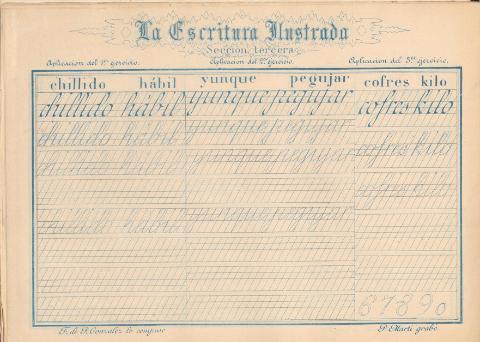 La Escritura Ilustrada
Sección tercera
Aplicacion del 1er. ejercicio. Aplicacion del 2º. ejercicio. Aplicacion del 3er. ejercicio.
chillido hábil yunque pegujar cofres kilo
chillido hábil yunque pegujar cofres kilo
chillido hábil yunque pegujar cofres kilo
chillido hábil yunque pegujar cofres kilo
cofres kilo
chillido hábil yunque pegujar
6 7 8 9 0
F. de P. Gonzalez lo compuso P. Marti grabó